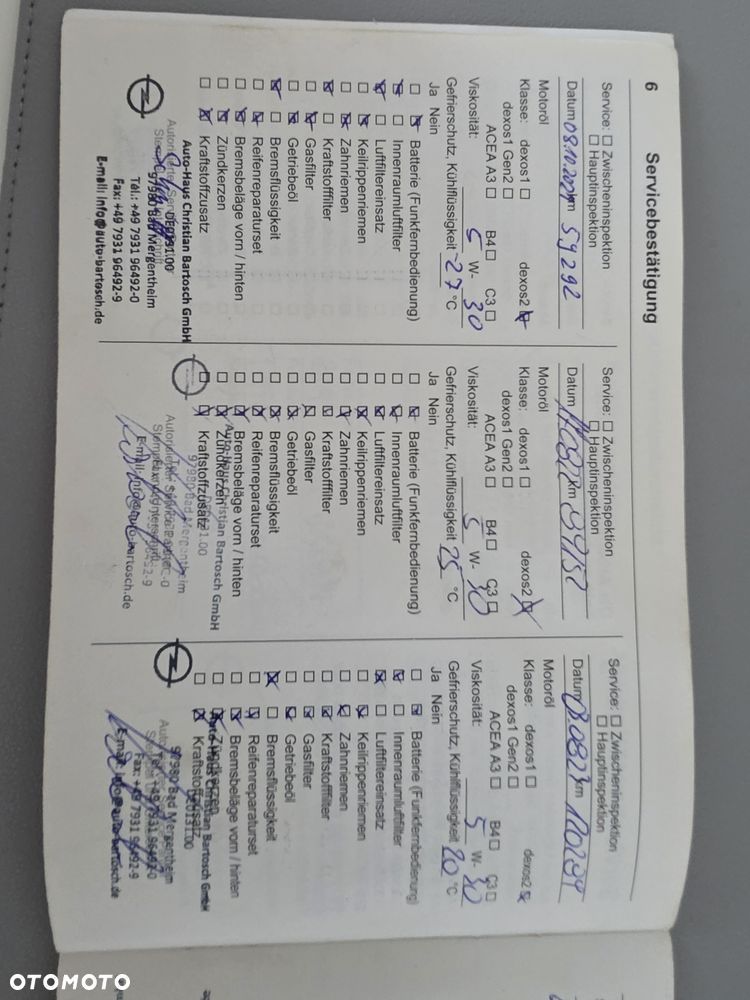 6 Servicebestätigung
Service: Zwischeninspektion
Hauptinspektion
Datum km 59292
Motoröl
Klasse: dexos1 dexos2
dexos1 Gen2
ACEA A3 B4 C3
Viskosität: 5 W- 30
Gefrierschutz, Kühlflüssigkeit -27 °C
Ja Nein
Batterie (Funkfernbedienung)
Innenraumluftfilter
Luftfiltereinsatz
Keilrippenriemen
Zahnriemen
Kraftstofffilter
Gasfilter
Getriebeöl
Bremsflüssigkeit
Reifenreparaturset
Bremsbeläge vorn / hinten
Zündkerzen
Kraftstoffzusatz
Auto-Haus Christian Bartosch GmbH
97980 Bad Mergentheim
Tel.: +49 7931 96492-0
Fax: +49 7931 96492-9
E-mail: info@auto-bartosch.de
Service: Zwischeninspektion
Hauptinspektion
Datum km
Motoröl
Klasse: dexos1 dexos2
dexos1 Gen2
ACEA A3 B4 C3
Viskosität: 5 W- 30
Gefrierschutz, Kühlflüssigkeit 25 °C
Ja Nein
Batterie (Funkfernbedienung)
Innenraumluftfilter
Luftfiltereinsatz
Keilrippenriemen
Zahnriemen
Kraftstofffilter
Gasfilter
Getriebeöl
Bremsflüssigkeit
Reifenreparaturset
Bremsbeläge vorn / hinten
Zündkerzen
Kraftstoffzusatz
Auto-Haus Christian Bartosch GmbH
97980 Bad Mergentheim
Service: Zwischeninspektion
Hauptinspektion
Datum km 120294
Motoröl
Klasse: dexos1 dexos2
dexos1 Gen2
ACEA A3 B4 C3
Viskosität: 5 W- 30
Gefrierschutz, Kühlflüssigkeit 20 °C
Ja Nein
Batterie (Funkfernbedienung)
Innenraumluftfilter
Luftfiltereinsatz
Keilrippenriemen
Zahnriemen
Kraftstofffilter
Gasfilter
Getriebeöl
Bremsflüssigkeit
Reifenreparaturset
Bremsbeläge vorn / hinten
Zündkerzen
Kraftstoffzusatz
Auto-Haus Christian Bartosch GmbH
97980 Bad Mergentheim
Tel.: +49 7931 96492-0
Fax: +49 7931 96492-9
E-mail: info@auto-bartosch.de
OTOMOTO